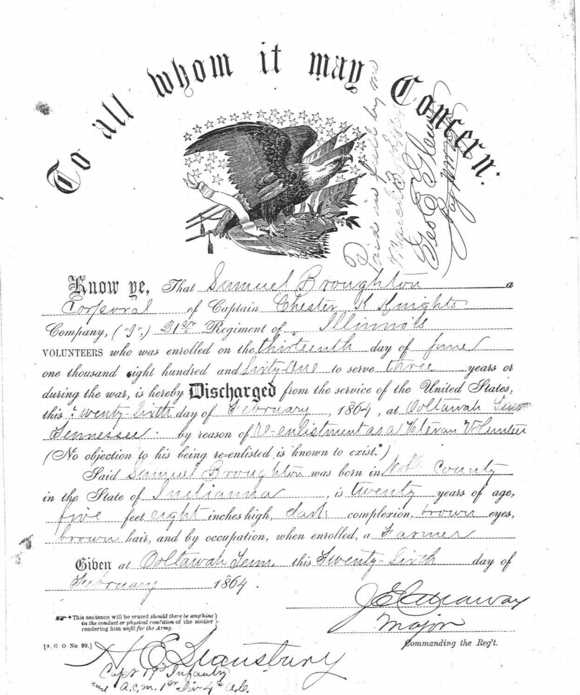 To all whom it may Concern:
Paid in full by me
Geo E Glenn
Paymaster
Know ye, That Samuel Broughton a
Corporal of Captain Chester K Knights
Company, (I.) 21st Regiment of Illinois
VOLUNTEERS who was enrolled on the thirteenth day of June
one thousand eight hundred and Sixty One to serve three years or
during the war, is hereby Discharged from the service of the United States,
this Twenty-Sixth day of February, 1864, at Ooltawah Tenn
Tennessee by reason of re-enlistment as a Veteran Volunteer
(No objection to his being re-enlisted is known to exist.*)
Said Samuel Broughton was born in County
in the State of Indianna, is twenty years of age,
five feet eight inches high, dark complexion, brown eyes,
brown hair, and by occupation, when enrolled, a Farmer
Given at Ooltawah Tenn. this Twenty-Sixth day of
February 1864.
*This sentence will be erased should there be anything
in the conduct or physical condition of the soldier
rendering him unfit for the Army.
J E Calaway
Major
[A. G. O. No. 99.] Commanding the Reg't.
H. E. Stansbury
Capt 19" Infantry
and A.C.M. 1st Div 4th A.C.